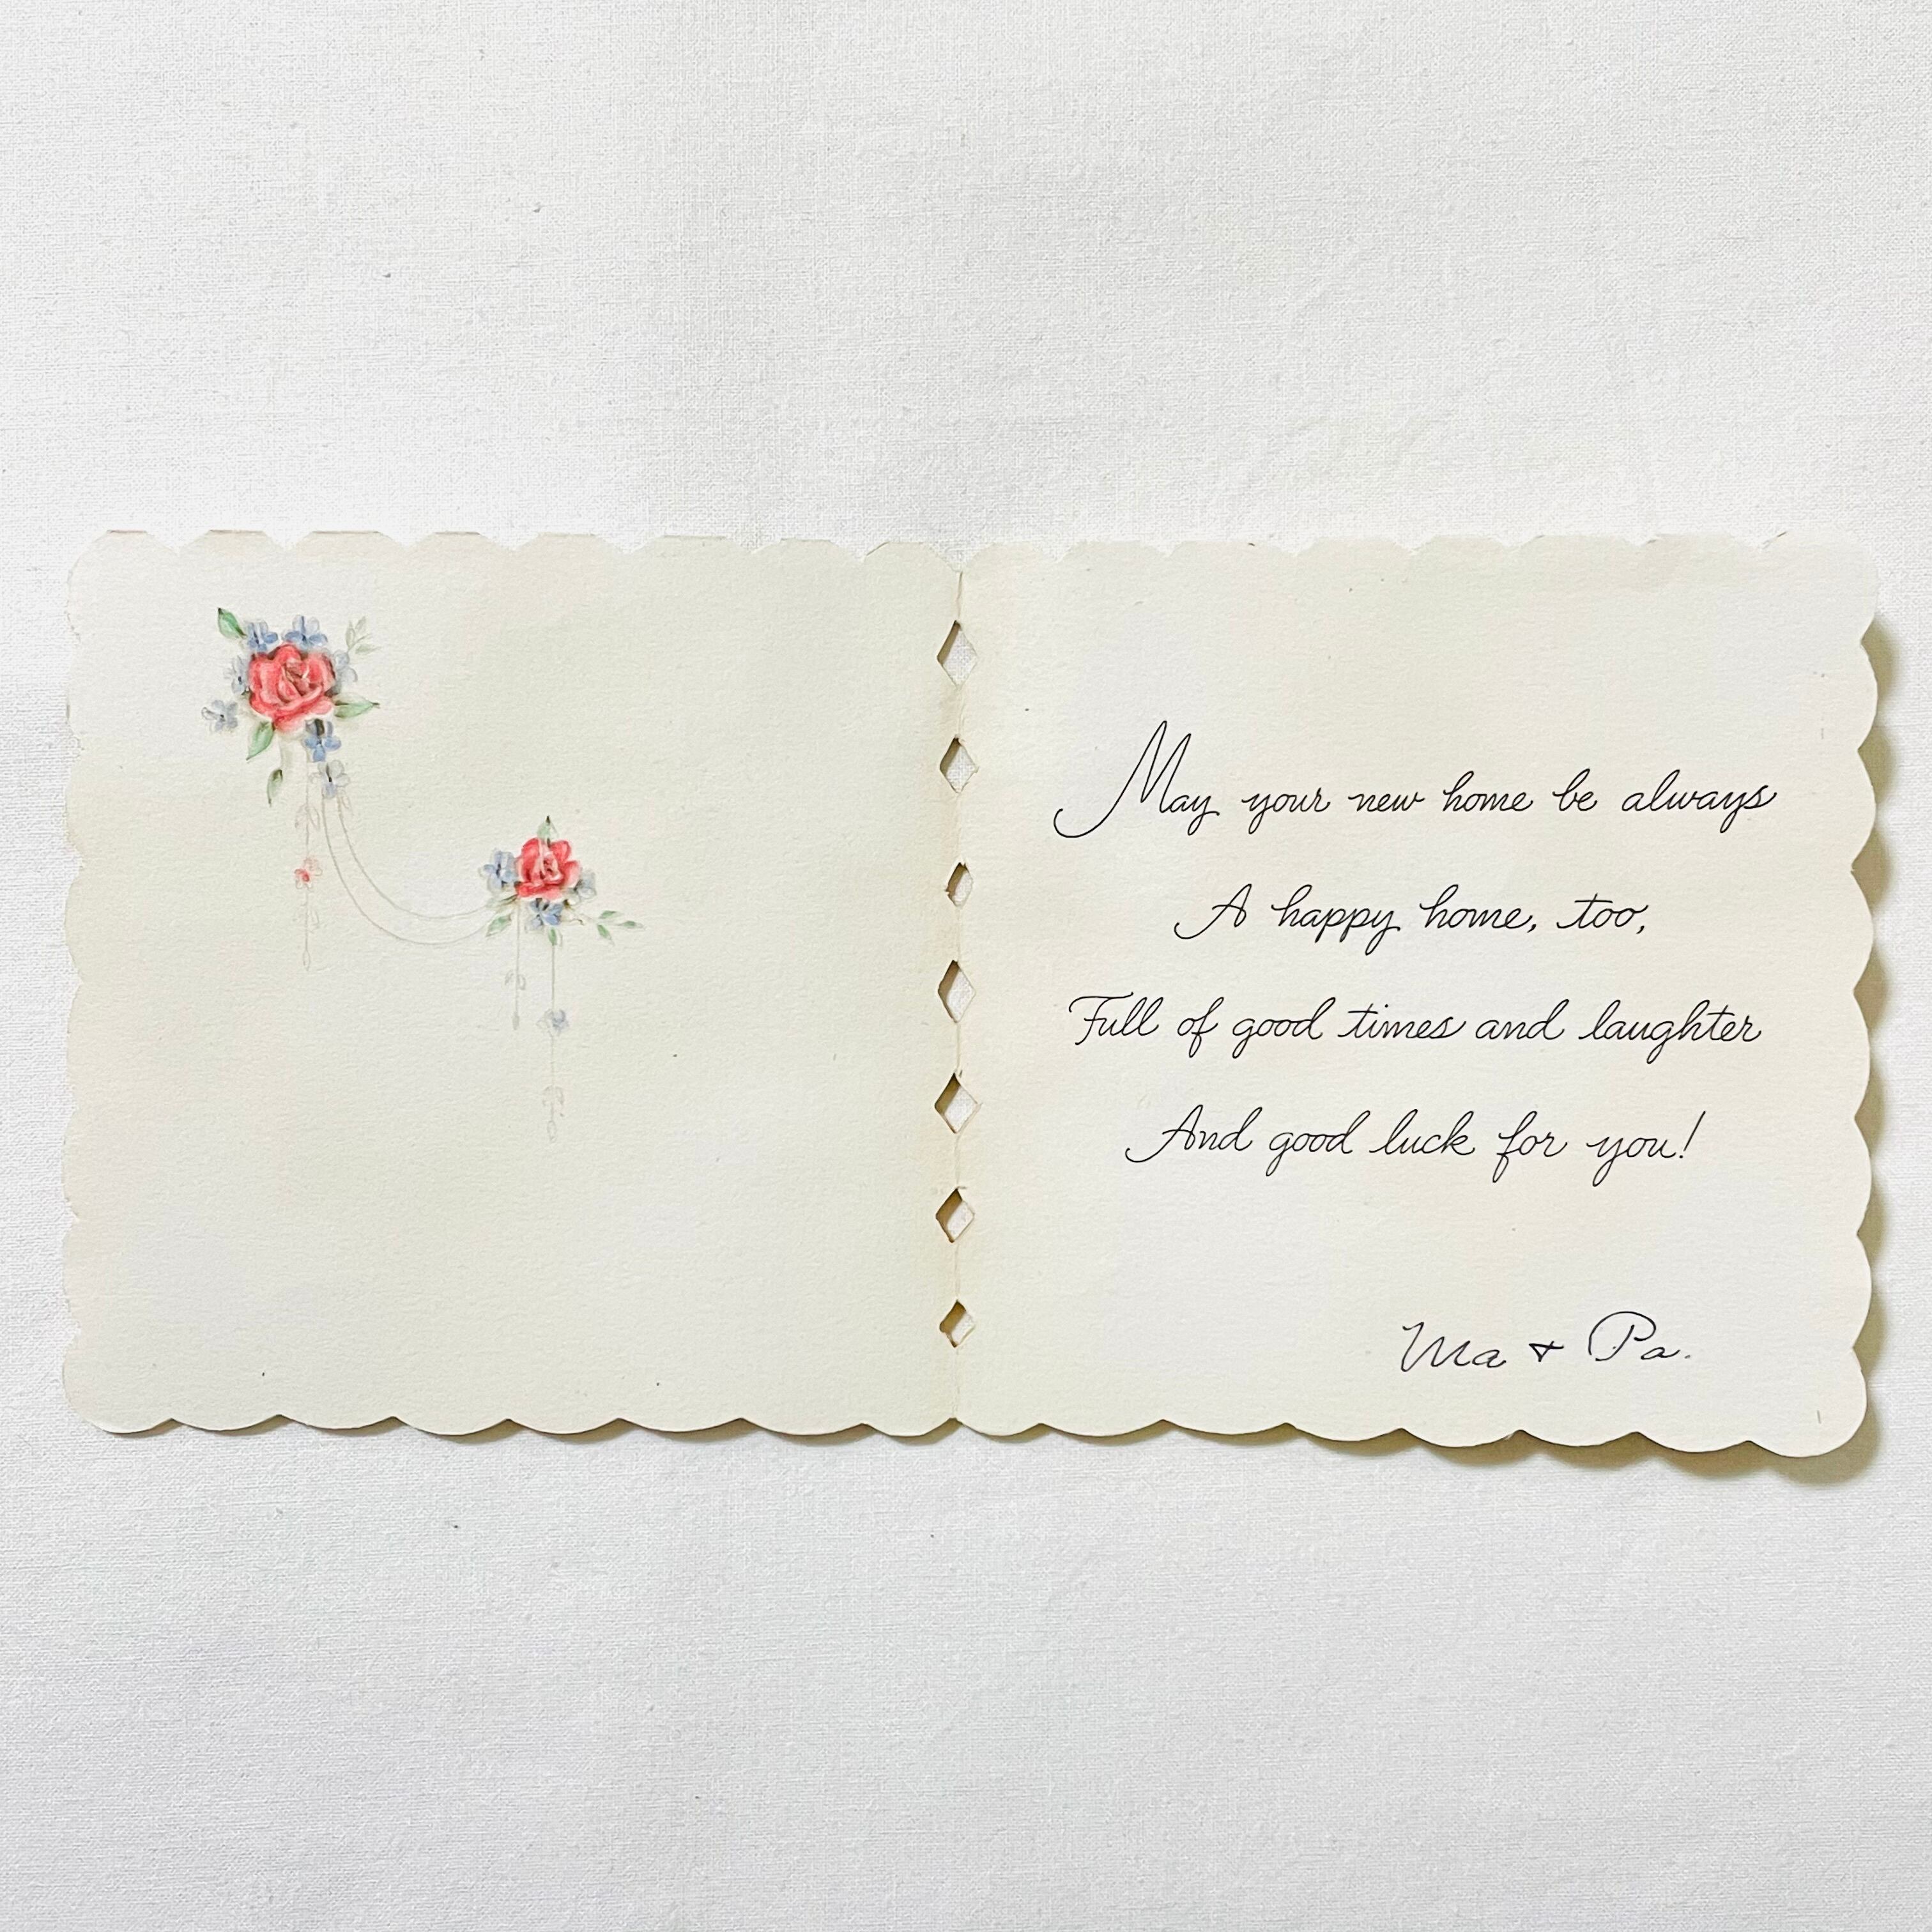 May your new home be always
A happy home, too,
Full of good times and laughter
And good luck for you!
Ma + Pa.